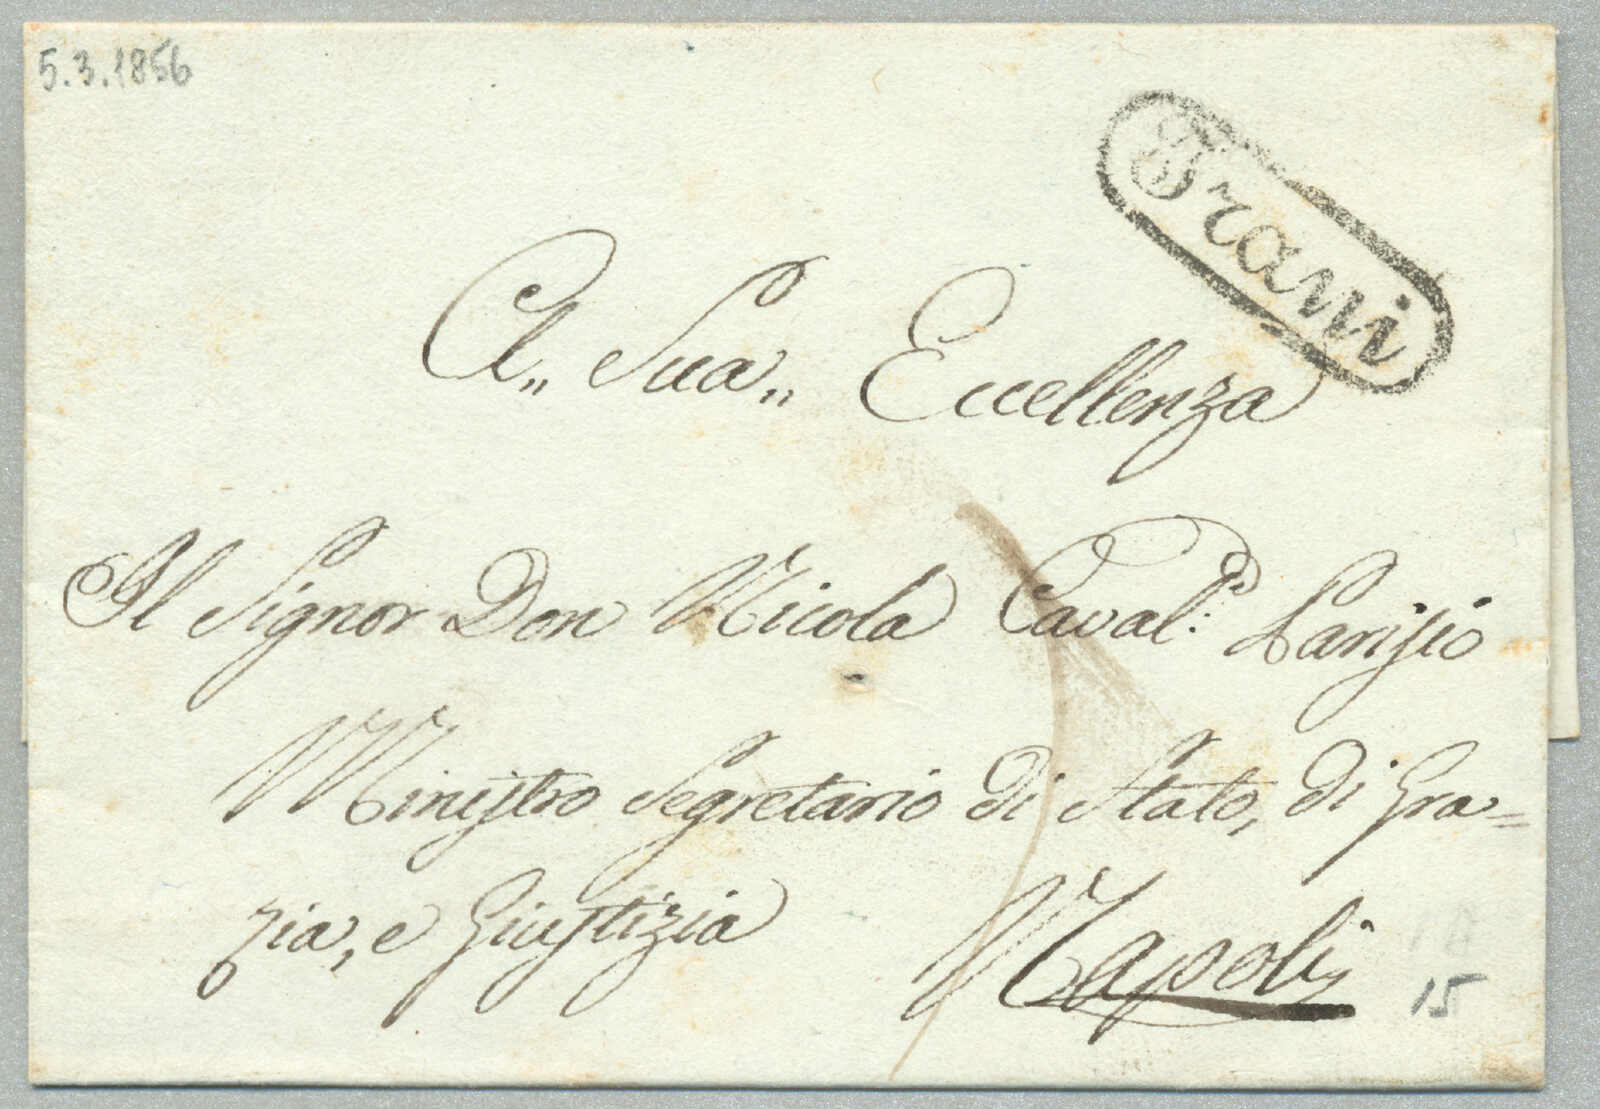 5.3.1836
Trani
A„ Sua„ Eccellenza
Il Signor Don Nicola Caval:e Parisio
Ministro Segretario di Stato, di Gra=
zia, e Giustizia Napoli
15